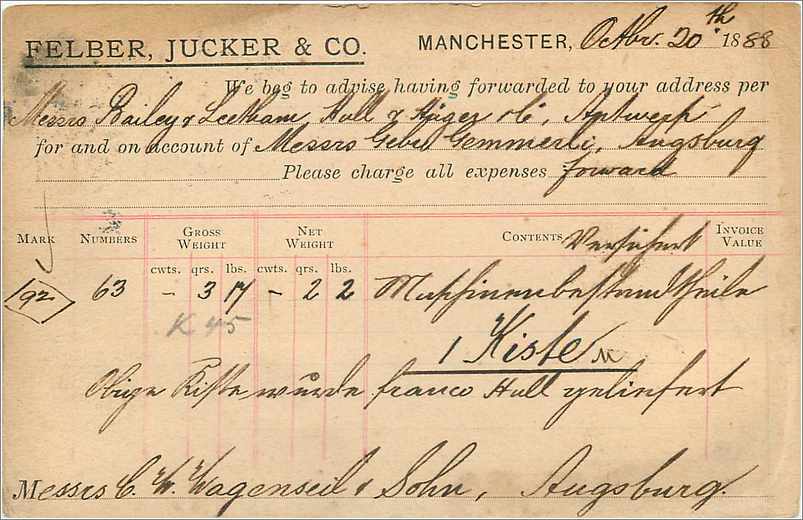 FELBER, JUCKER & CO. MANCHESTER, Octbr. 20th 1888
We beg to advise having forwarded to your address per
Messrs Bailey & Leetham, Hull & Co, Antwerp
for and on account of Messrs Gebr Gemmerli, Augsburg
Please charge all expenses forward
MARK NUMBERS GROSS WEIGHT NET WEIGHT CONTENTS Versichert INVOICE VALUE
cwts. qrs. lbs. cwts. qrs. lbs.
192 63 – 3 17 – 2 2 Maschinenbestandtheile
K 45
1 Kiste
Obige Kiste wurde franco Hull geliefert
Messrs C. W. Wagenseil & Sohn, Augsburg.